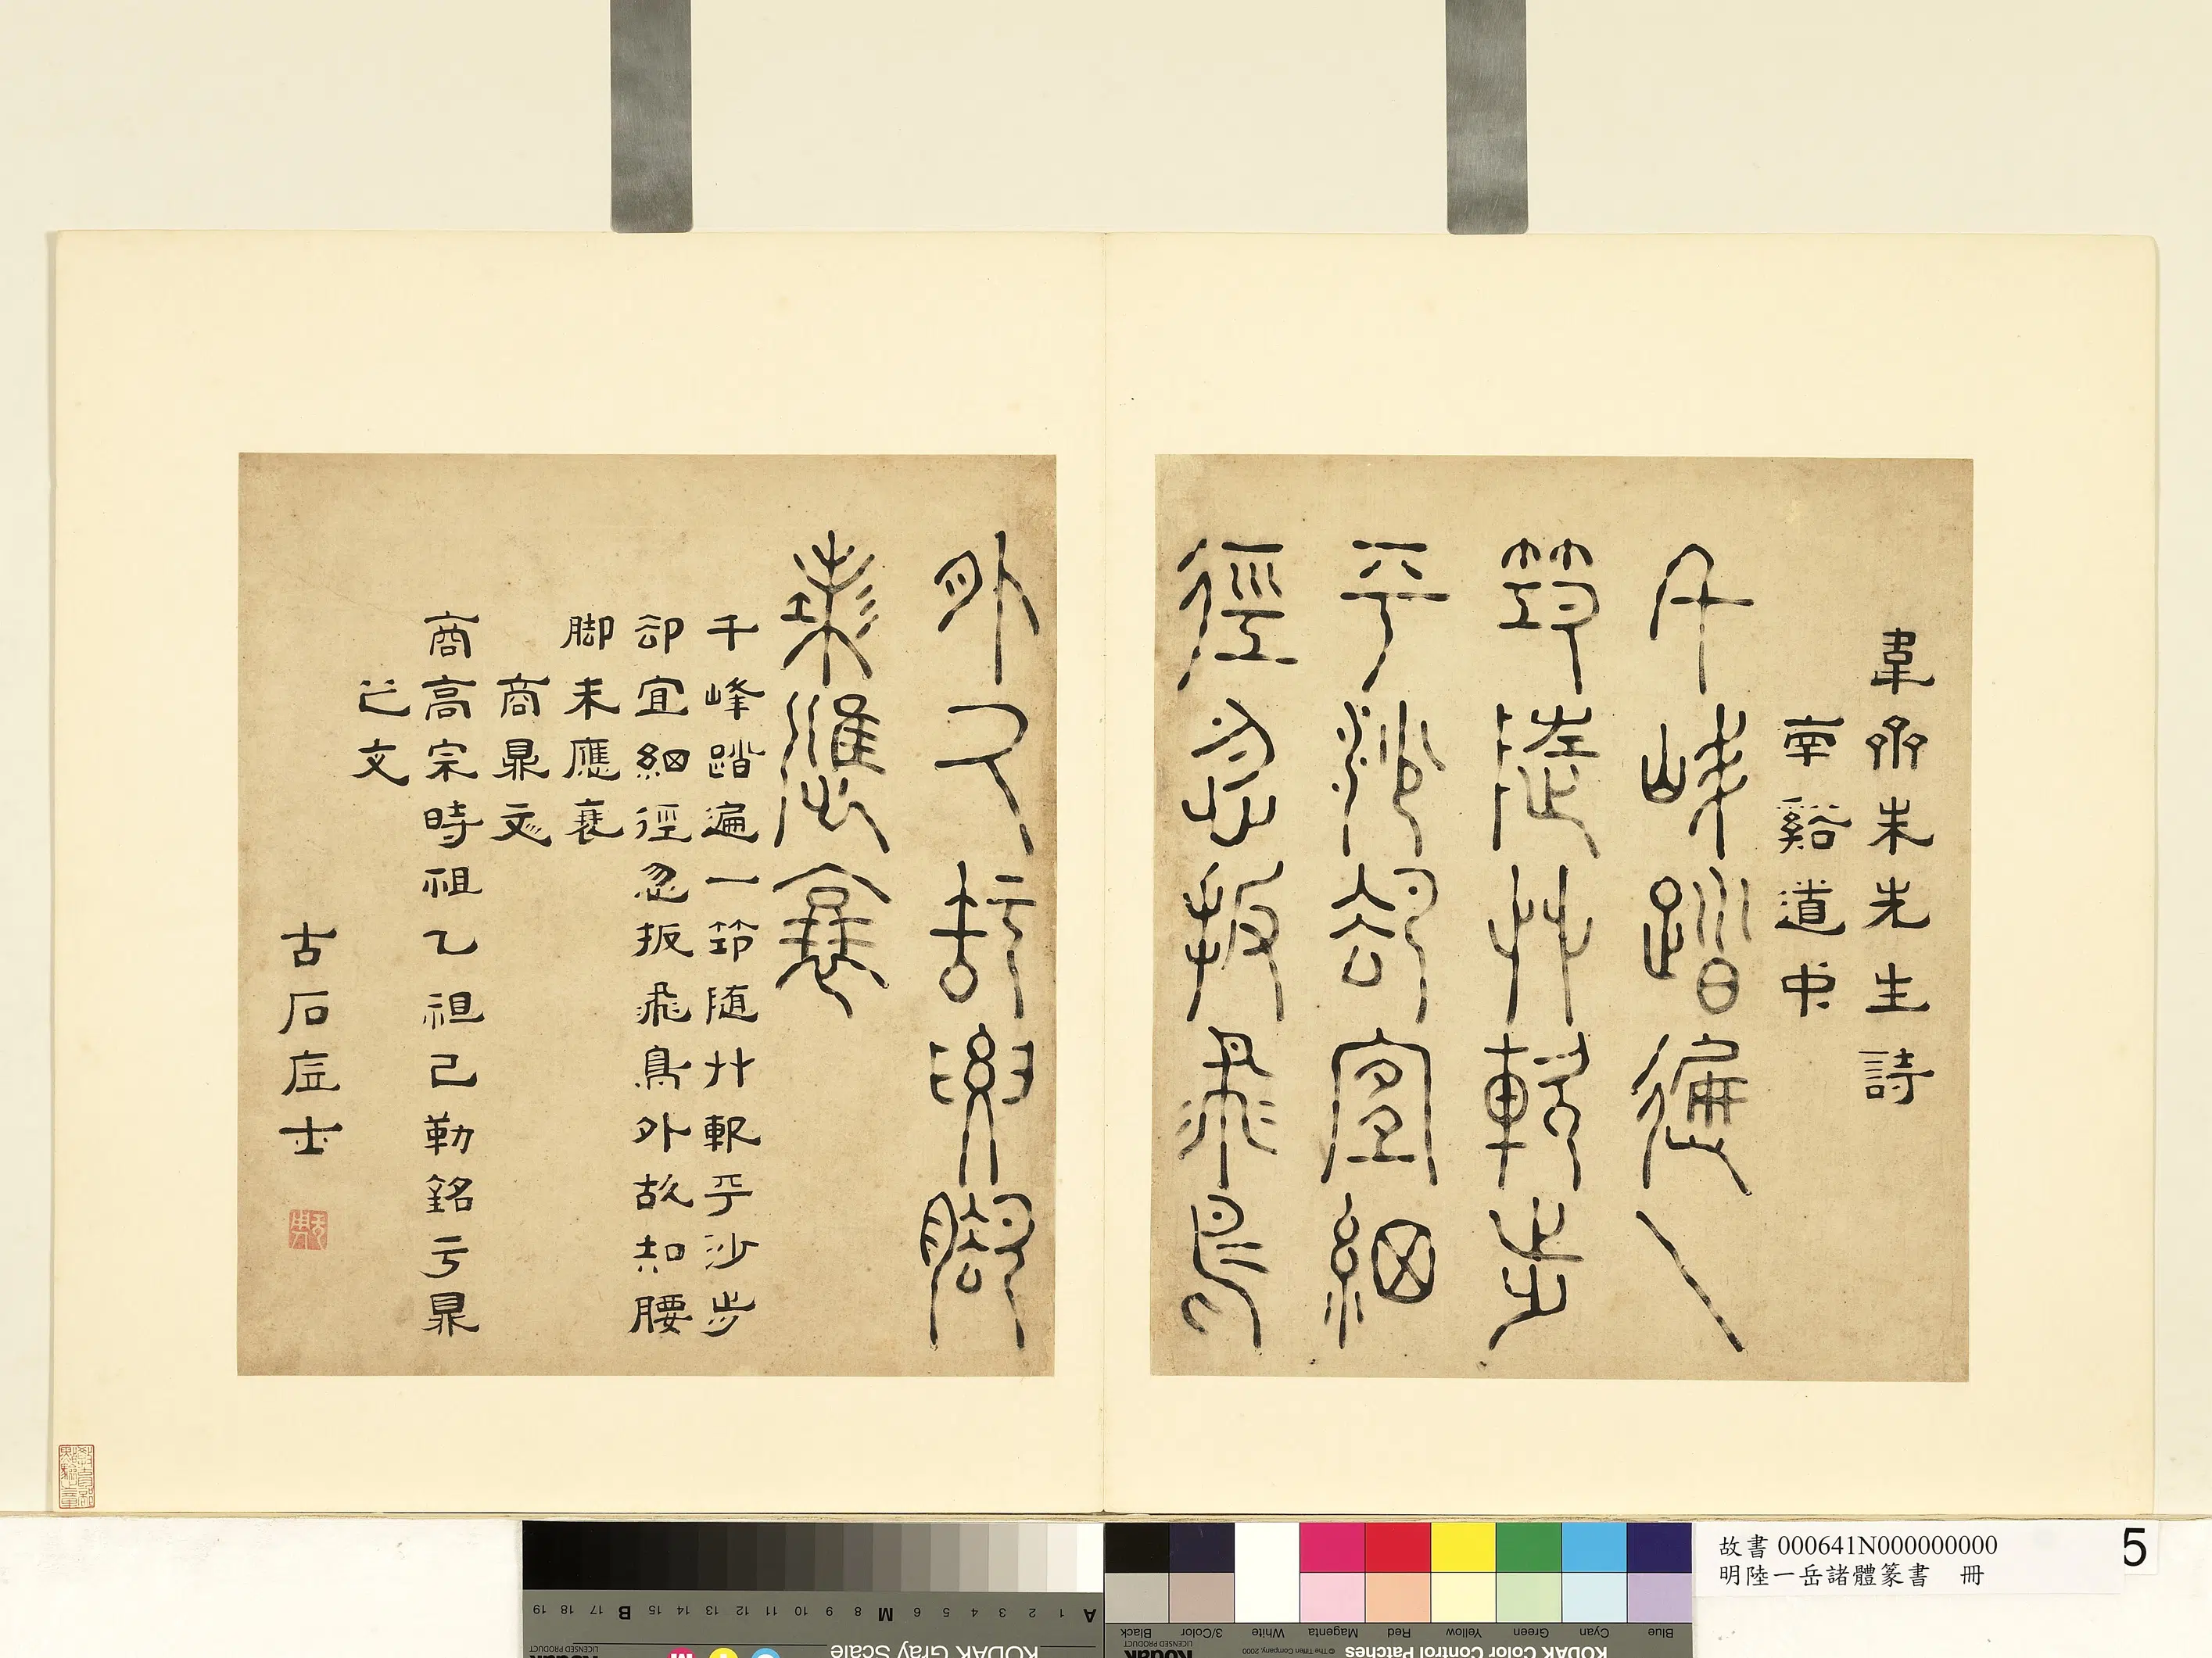 韋齋朱先生詩
南谿道中
千峰踏遍一
筇隨艸軟步
平沙却宜細
徑忽扳飛鳥
外故知腰脚
未應衰
千峰踏遍一筇随艸軟平沙步
却宜細徑忽扳飛鳥外故知腰
脚未應衰
商鼎文
商高宗時祖乙祖己勒銘亏鼎
之文
古石士
故書 000641N000000000
明陸一岳諸體篆書 冊
5
KODAK Gray Scale
A 1 2 3 4 5 6 M 8 9 10 11 12 13 14 15 B 17 18 19
LICENSED PRODUCT
Kodak
KODAK Color Control Patches
© The Tiffen Company, 2000
Kodak
LICENSED PRODUCT
Blue Cyan Green Yellow Red Magenta White 3/Color Black